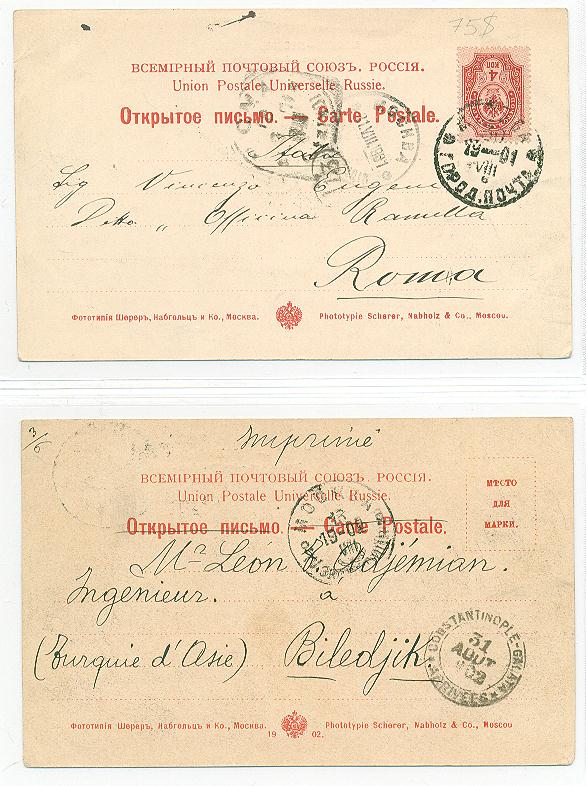 75$
ВСЕМІРНЫЙ ПОЧТОВЫЙ СОЮЗЪ. РОССІЯ.
Union Postale Universelle Russie.
Открытое письмо. — Carte Postale.
4 КОП
МОСКВА
VIII 1901
19 01
VIII
6
ГОРОД. ПОЧТА
Italia
Sig Vincenzo Eugeni
Ditta „ Officina Ramella
Roma
Фототипія Шереръ, Набгольцъ и Ко., Москва.
Phototypie Scherer, Nabholz & Co., Moscou.
3/6
Imprimé
ВСЕМІРНЫЙ ПОЧТОВЫЙ СОЮЗЪ. РОССІЯ.
Union Postale Universelle Russie.
МѢСТО
ДЛЯ
МАРКИ.
Открытое письмо. — Carte Postale.
МОСКВА
19 02
VIII
Mr Leon djémian.
Ingenieur. a
(Turquie d'Asie) Biledjik
CONSTANTINOPLE-GALATA
31
AOUT
02
ARRIVÉES
Фототипія Шереръ, Набгольцъ и Ко., Москва.
Phototypie Scherer, Nabholz & Co., Moscou
19 02.